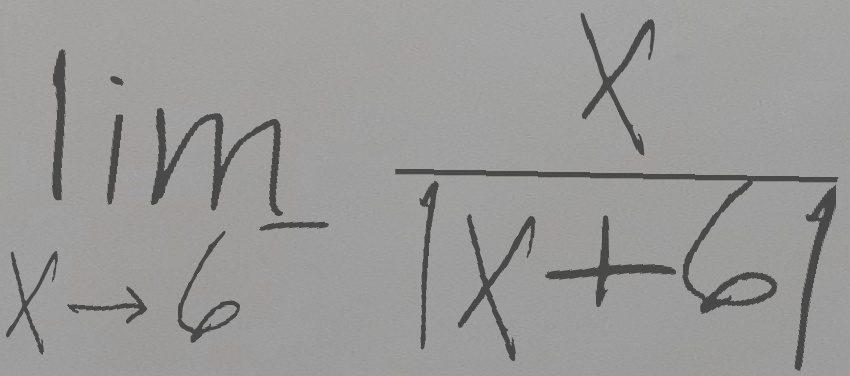 lim x→6⁻ x/|x+6|